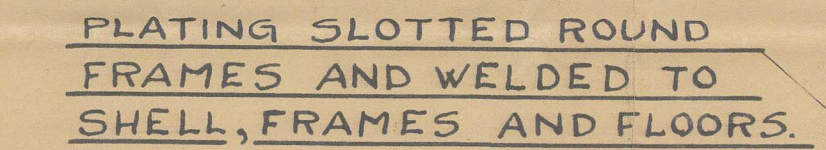 PLATING SLOTTED ROUND
FRAMES AND WELDED TO
SHELL, FRAMES AND FLOORS.